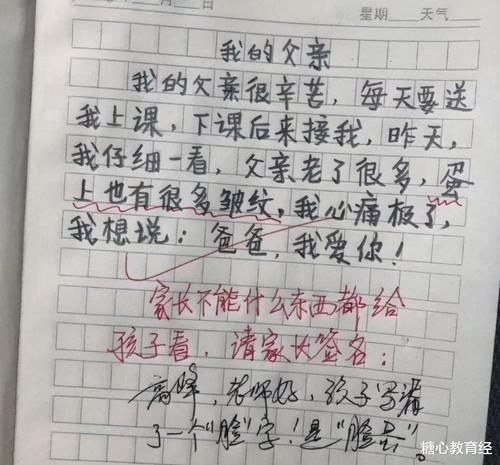 月 日 星期 天气
我的父亲
我的父亲很辛苦，每天要送
我上课，下课后来接我，昨天，
我仔细一看，父亲老了很多，蛋
上也有很多皱纹，我心痛极了，
我想说：爸爸，我爱你！
家长不能什么东西都给
孩子看，请家长签名：
高峰，老师好，孩子写漏
了一个"脸"字！是"脸蛋"。
糖心教育经